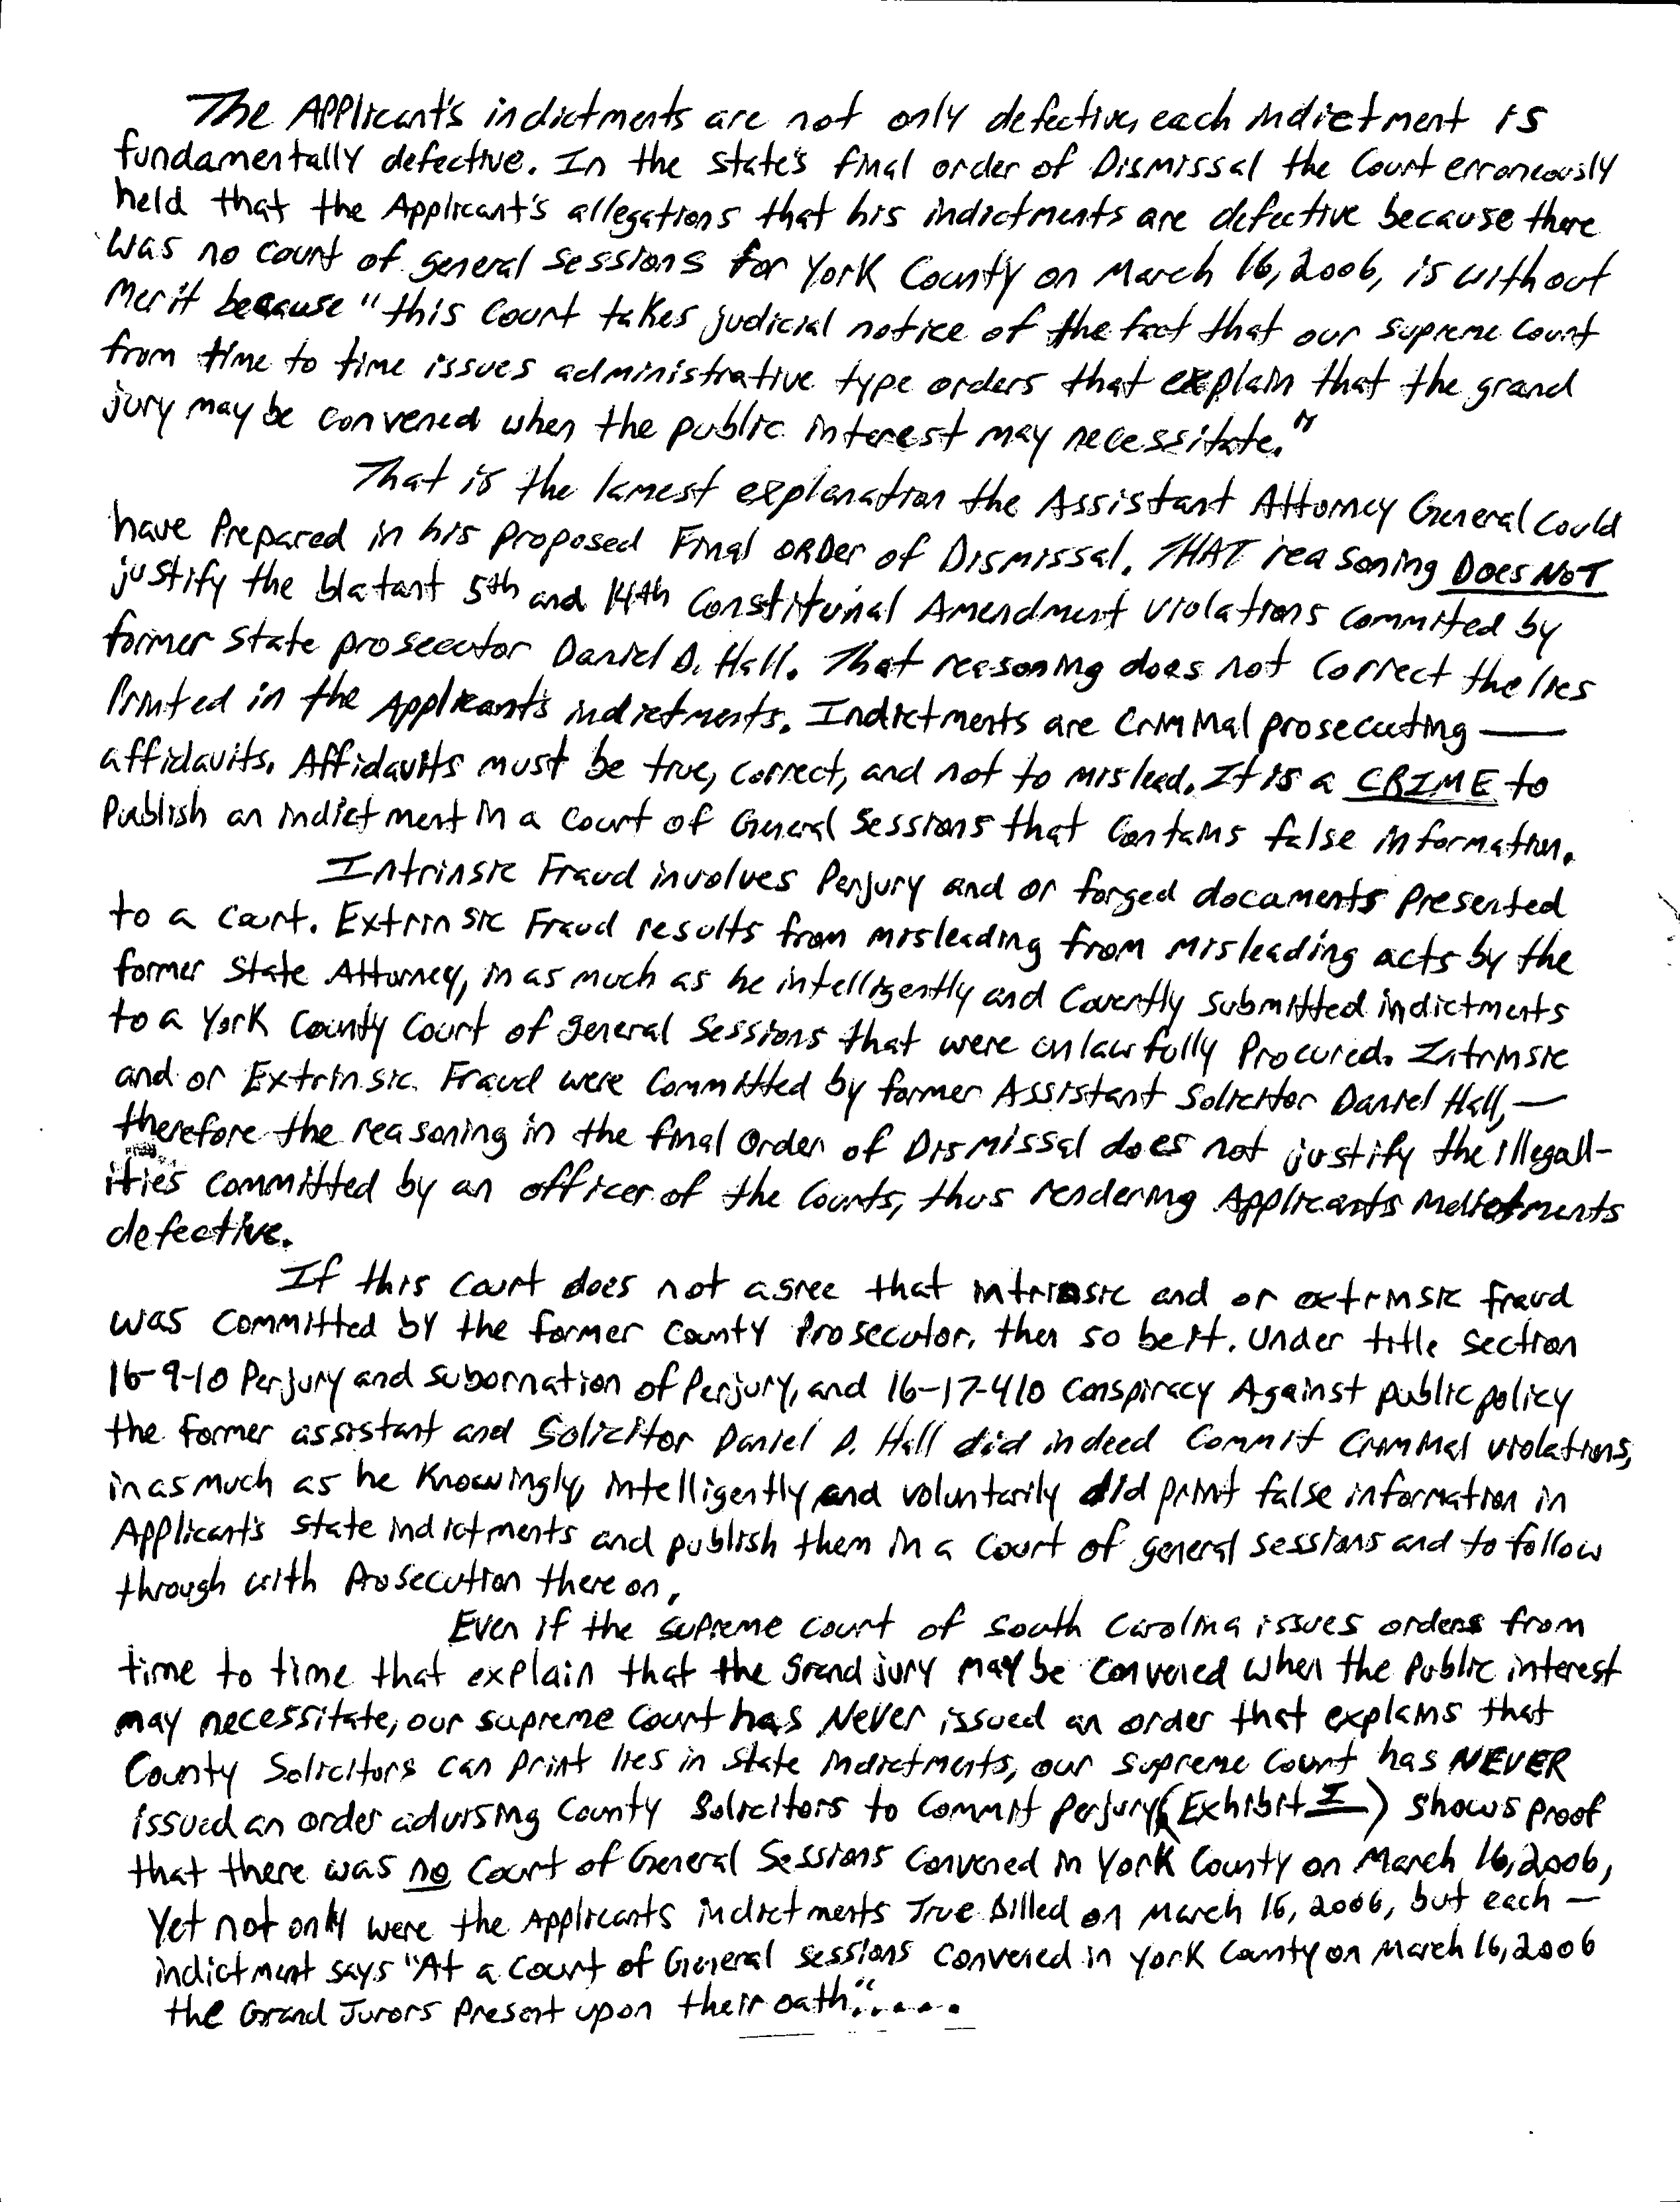 The Applicant's indictments are not only defective, each indictment is
fundamentally defective. In the state's final order of Dismissal the Court erroneously
held that the Applicant's allegations that his indictments are defective because there
was no court of general sessions for York County on March 16, 2006, is without
Merit because "this Court takes judicial notice of the fact that our supreme court
from time to time issues administrative type orders that explain that the grand
jury may be convened when the public interest may necessitate."
That is the lamest explanation the Assistant Attorney General could
have Prepared in his proposed Final ORDer of Dismissal. THAT reasoning DOES NOT
justify the blatant 5th and 14th Constituinal Amendment violations committed by
former state prosecutor Daniel D. Hall. That reasoning does not correct the lies
Printed in the Applicant's indictments. Indictments are Criminal prosecuting —
affidavits. Affidavits must be true, correct, and not to mislead. It is a CRIME to
Publish an indictment in a Court of General Sessions that Contains false information.
Intrinsic Fraud involves Perjury and or forged documents Presented
to a Court. Extrinsic Fraud results from misleading from misleading acts by the
former State Attorney, in as much as he intelligently and Covertly Submitted indictments
to a York County Court of general Sessions that were unlawfully Procured. Intrinsic
and or Extrinsic Fraud were Committed by former Assistant Solicitor Daniel Hall, —
therefore the reasoning in the final Order of Dismissal does not justify the illegall-
ities committed by an officer of the Courts, thus rendering Applicants indictments
defective.
If this Court does not agree that intrinsic and or extrinsic fraud
was committed by the former County Prosecutor, then so be it. Under title section
16-9-10 Perjury and subornation of Perjury, and 16-17-410 Conspiracy Against public policy
the former assistant and Solicitor Daniel D. Hall did indeed Commit Criminal violations,
in as much as he Knowingly, intelligently, and voluntarily did print false information in
Applicant's state indictments and publish them in a Court of general sessions and to follow
through with Prosecution there on,
Even if the supreme court of South Carolina issues orders from
time to time that explain that the grand jury may be convened when the Public interest
may necessitate, our supreme Court has Never issued an order that explains that
County Solicitors can print lies in state indictments, our supreme Court has NEVER
issued an order advising County Solicitors to Commit Perjury (Exhibit I) shows proof
that there was no Court of General Sessions Convened in York County on March 16, 2006,
Yet not only were the Applicants indictments True Billed on March 16, 2006, but each —
indictment says "At a Court of General Sessions Convened in York County on March 16, 2006
the Grand Jurors Present upon their oath".....